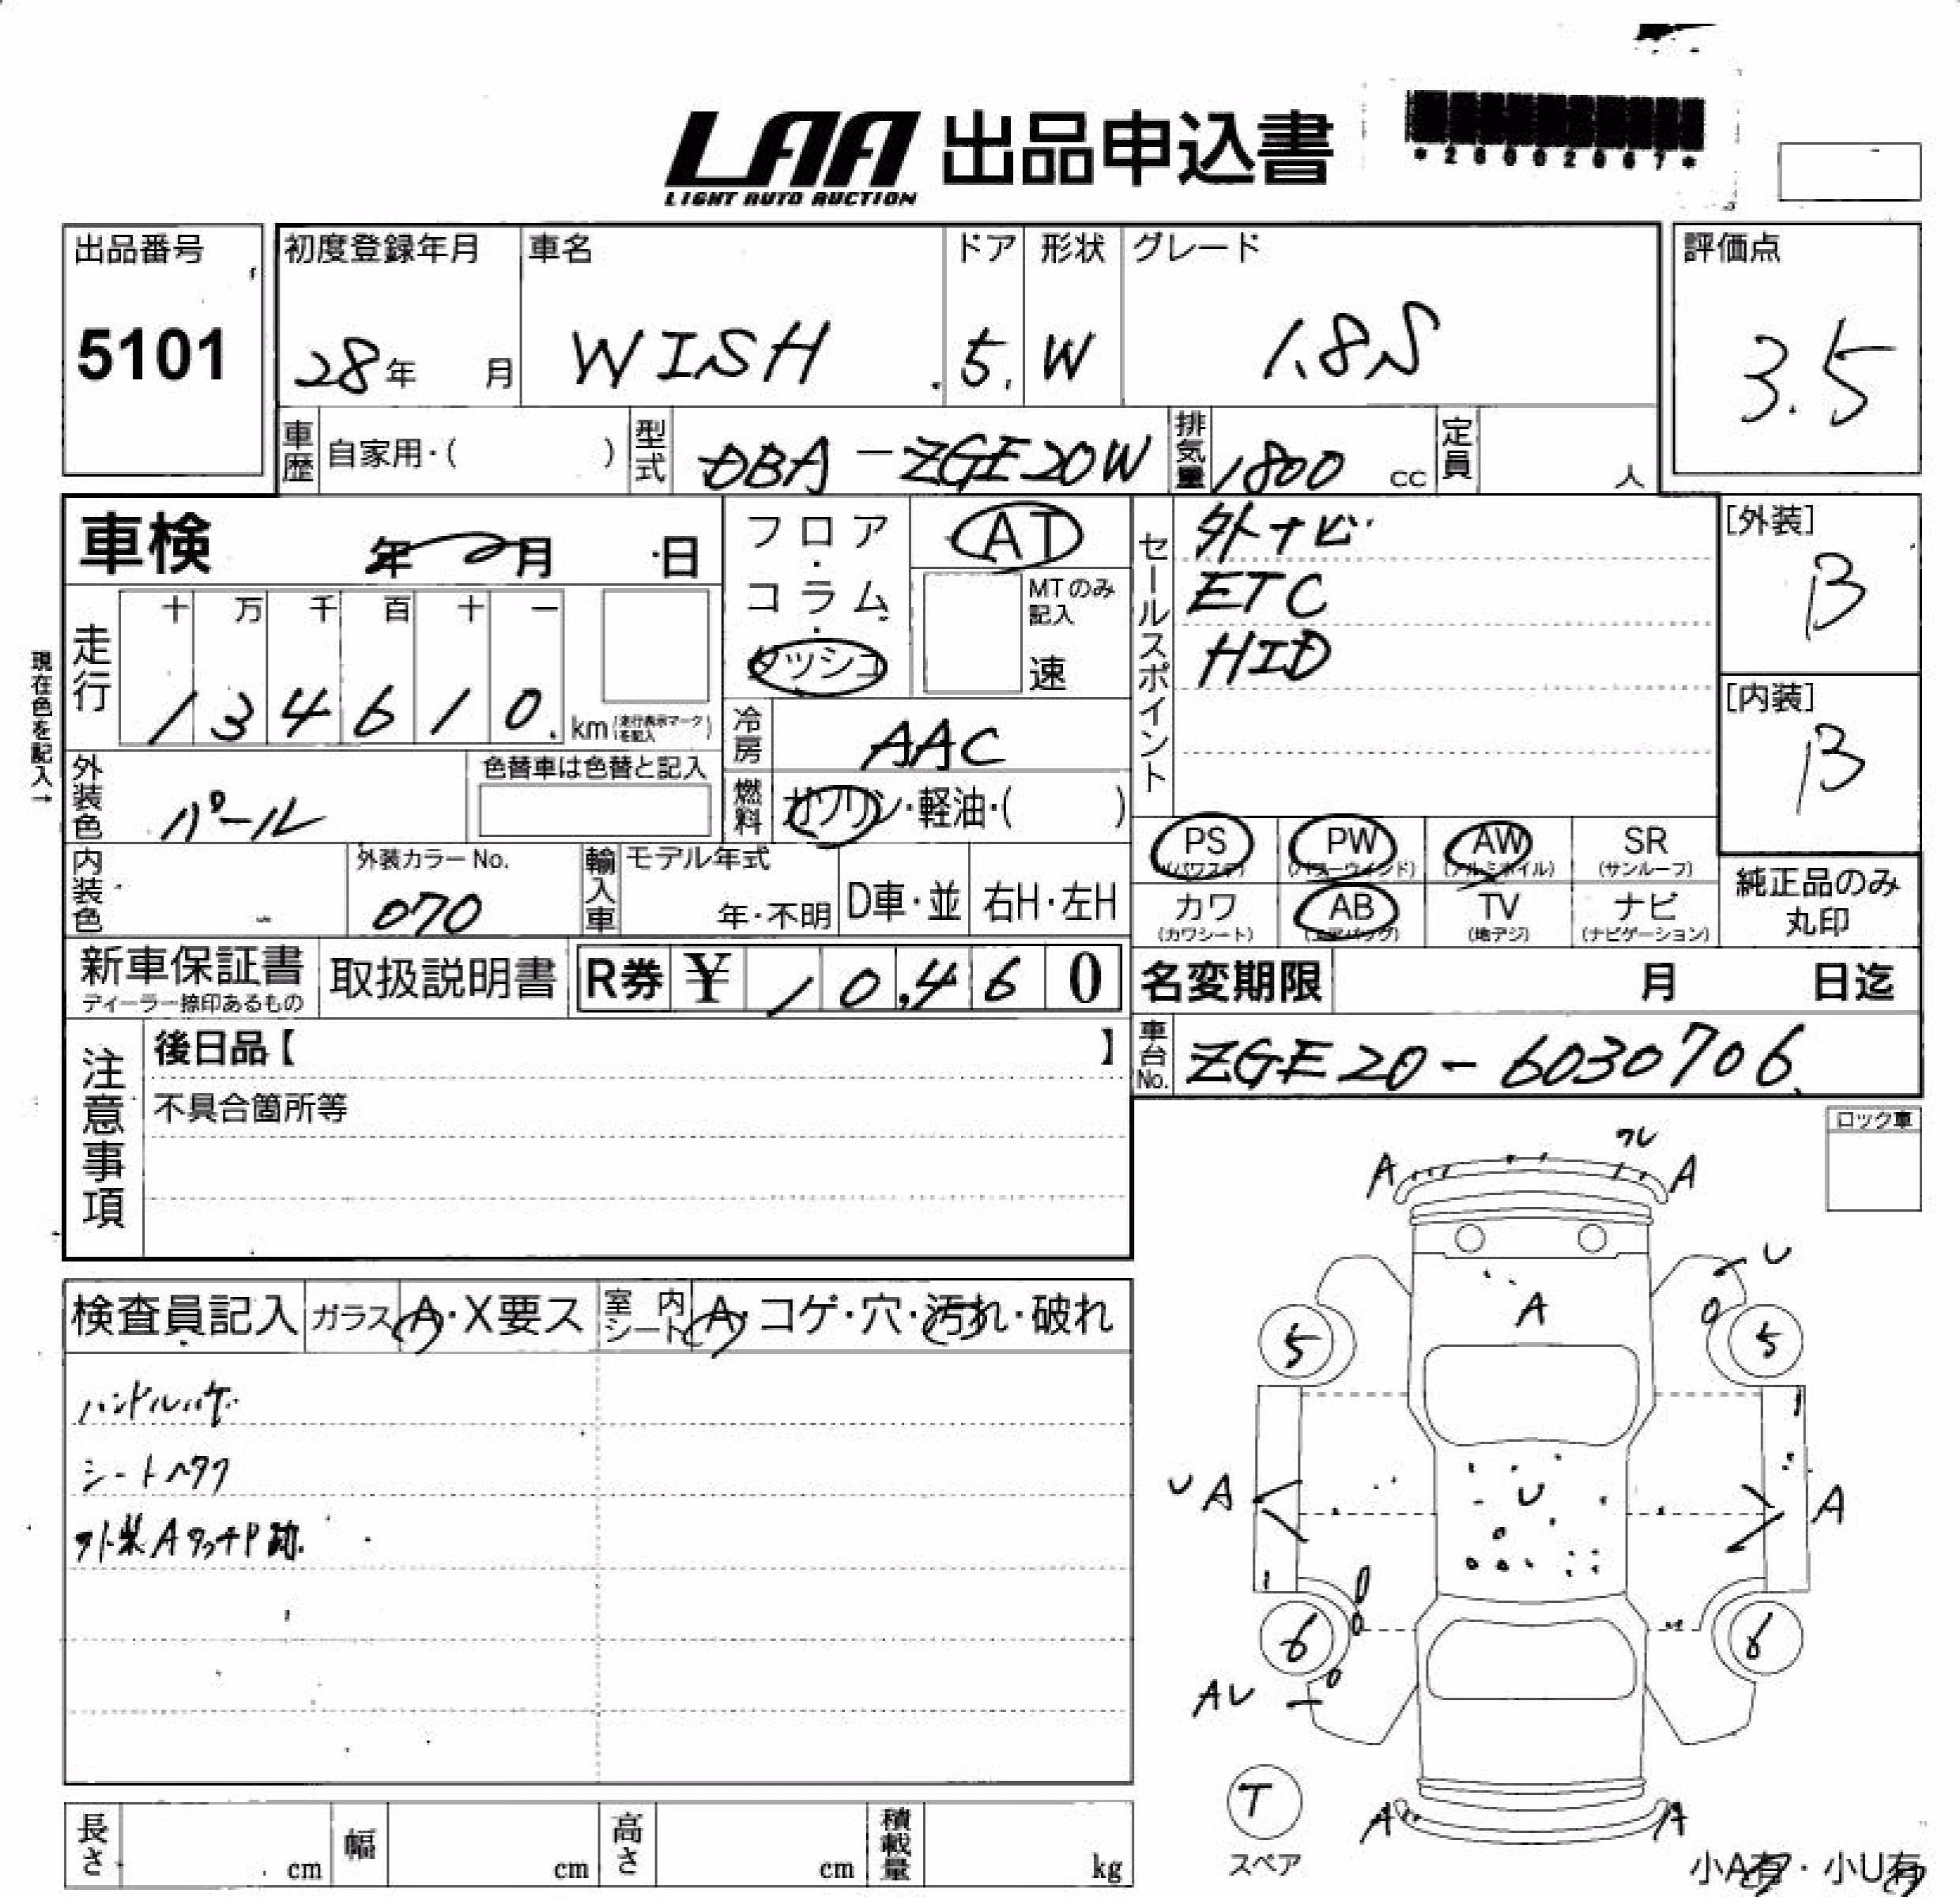 LAA 出品申込書
LIGHT AUTO AUCTION
*28002067*
出品番号
5101
初度登録年月
28年 月
車名
WISH
ドア
5.
形状
W
グレード
1.8S
評価点
3.5
車歴 自家用・( )
型式 DBA-ZGE20W
排気量 1800 cc
定員 人
車検 年 月 日
フロア・コラム・ダッシュ
AT
MTのみ記入
速
セールスポイント
外ナビ
ETC
HID
[外装]
B
[内装]
B
現在色を記入→
走行
十 万 千 百 十 一
1 3 4 6 1 0. km (走行表示マークを記入)
冷房 AAC
外装色 パール
色替車は色替と記入
燃料 ガソリン・軽油・( )
PS (パワステ)
PW (パワーウインド)
AW (アルミホイル)
SR (サンルーフ)
カワ (カワシート)
AB (エアバッグ)
TV (地デジ)
ナビ (ナビゲーション)
純正品のみ丸印
内装色
外装カラーNo.
070
輸入車 モデル年式
年・不明 D車・並 右H・左H
新車保証書
ディーラー捺印あるもの
取扱説明書
R券 ¥ 10,460
名変期限 月 日迄
車台No. ZGE20-6030706
注意事項
後日品【 】
不具合箇所等
ロック車
検査員記入 ガラス A・X要ス 室内シート A・コゲ・穴・汚れ・破れ
ハンドルハゲ
シートヘタリ
外装AタッチP跡
ワレ
A A
U
A
5 5
U A
U
A
6 6
AU
T
スペア
A A
小A有・小U有
長さ cm 幅 cm 高さ cm 積載量 kg